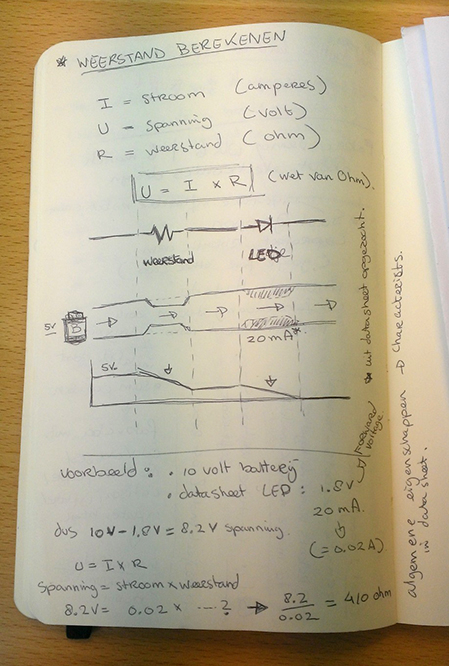 * WEERSTAND BEREKENEN
I = stroom (amperes)
U = spanning (volt)
R = weerstand (ohm)
U = I × R (wet van Ohm).
weerstand LED
5V
20 mA*
5V
* uit datasheet opgezocht.
voorbeeld: • 10 volt batterij
• datasheet LED: 1.8V → Forward voltage.
20 mA.
dus 10V - 1.8V = 8.2V spanning.
(= 0.02 A)
U = I × R
Spanning = stroom × weerstand
8.2V = 0.02 × ...? → 8.2 / 0.02 = 410 ohm
algemene eigenschappen → Characterists.
in data sheet.